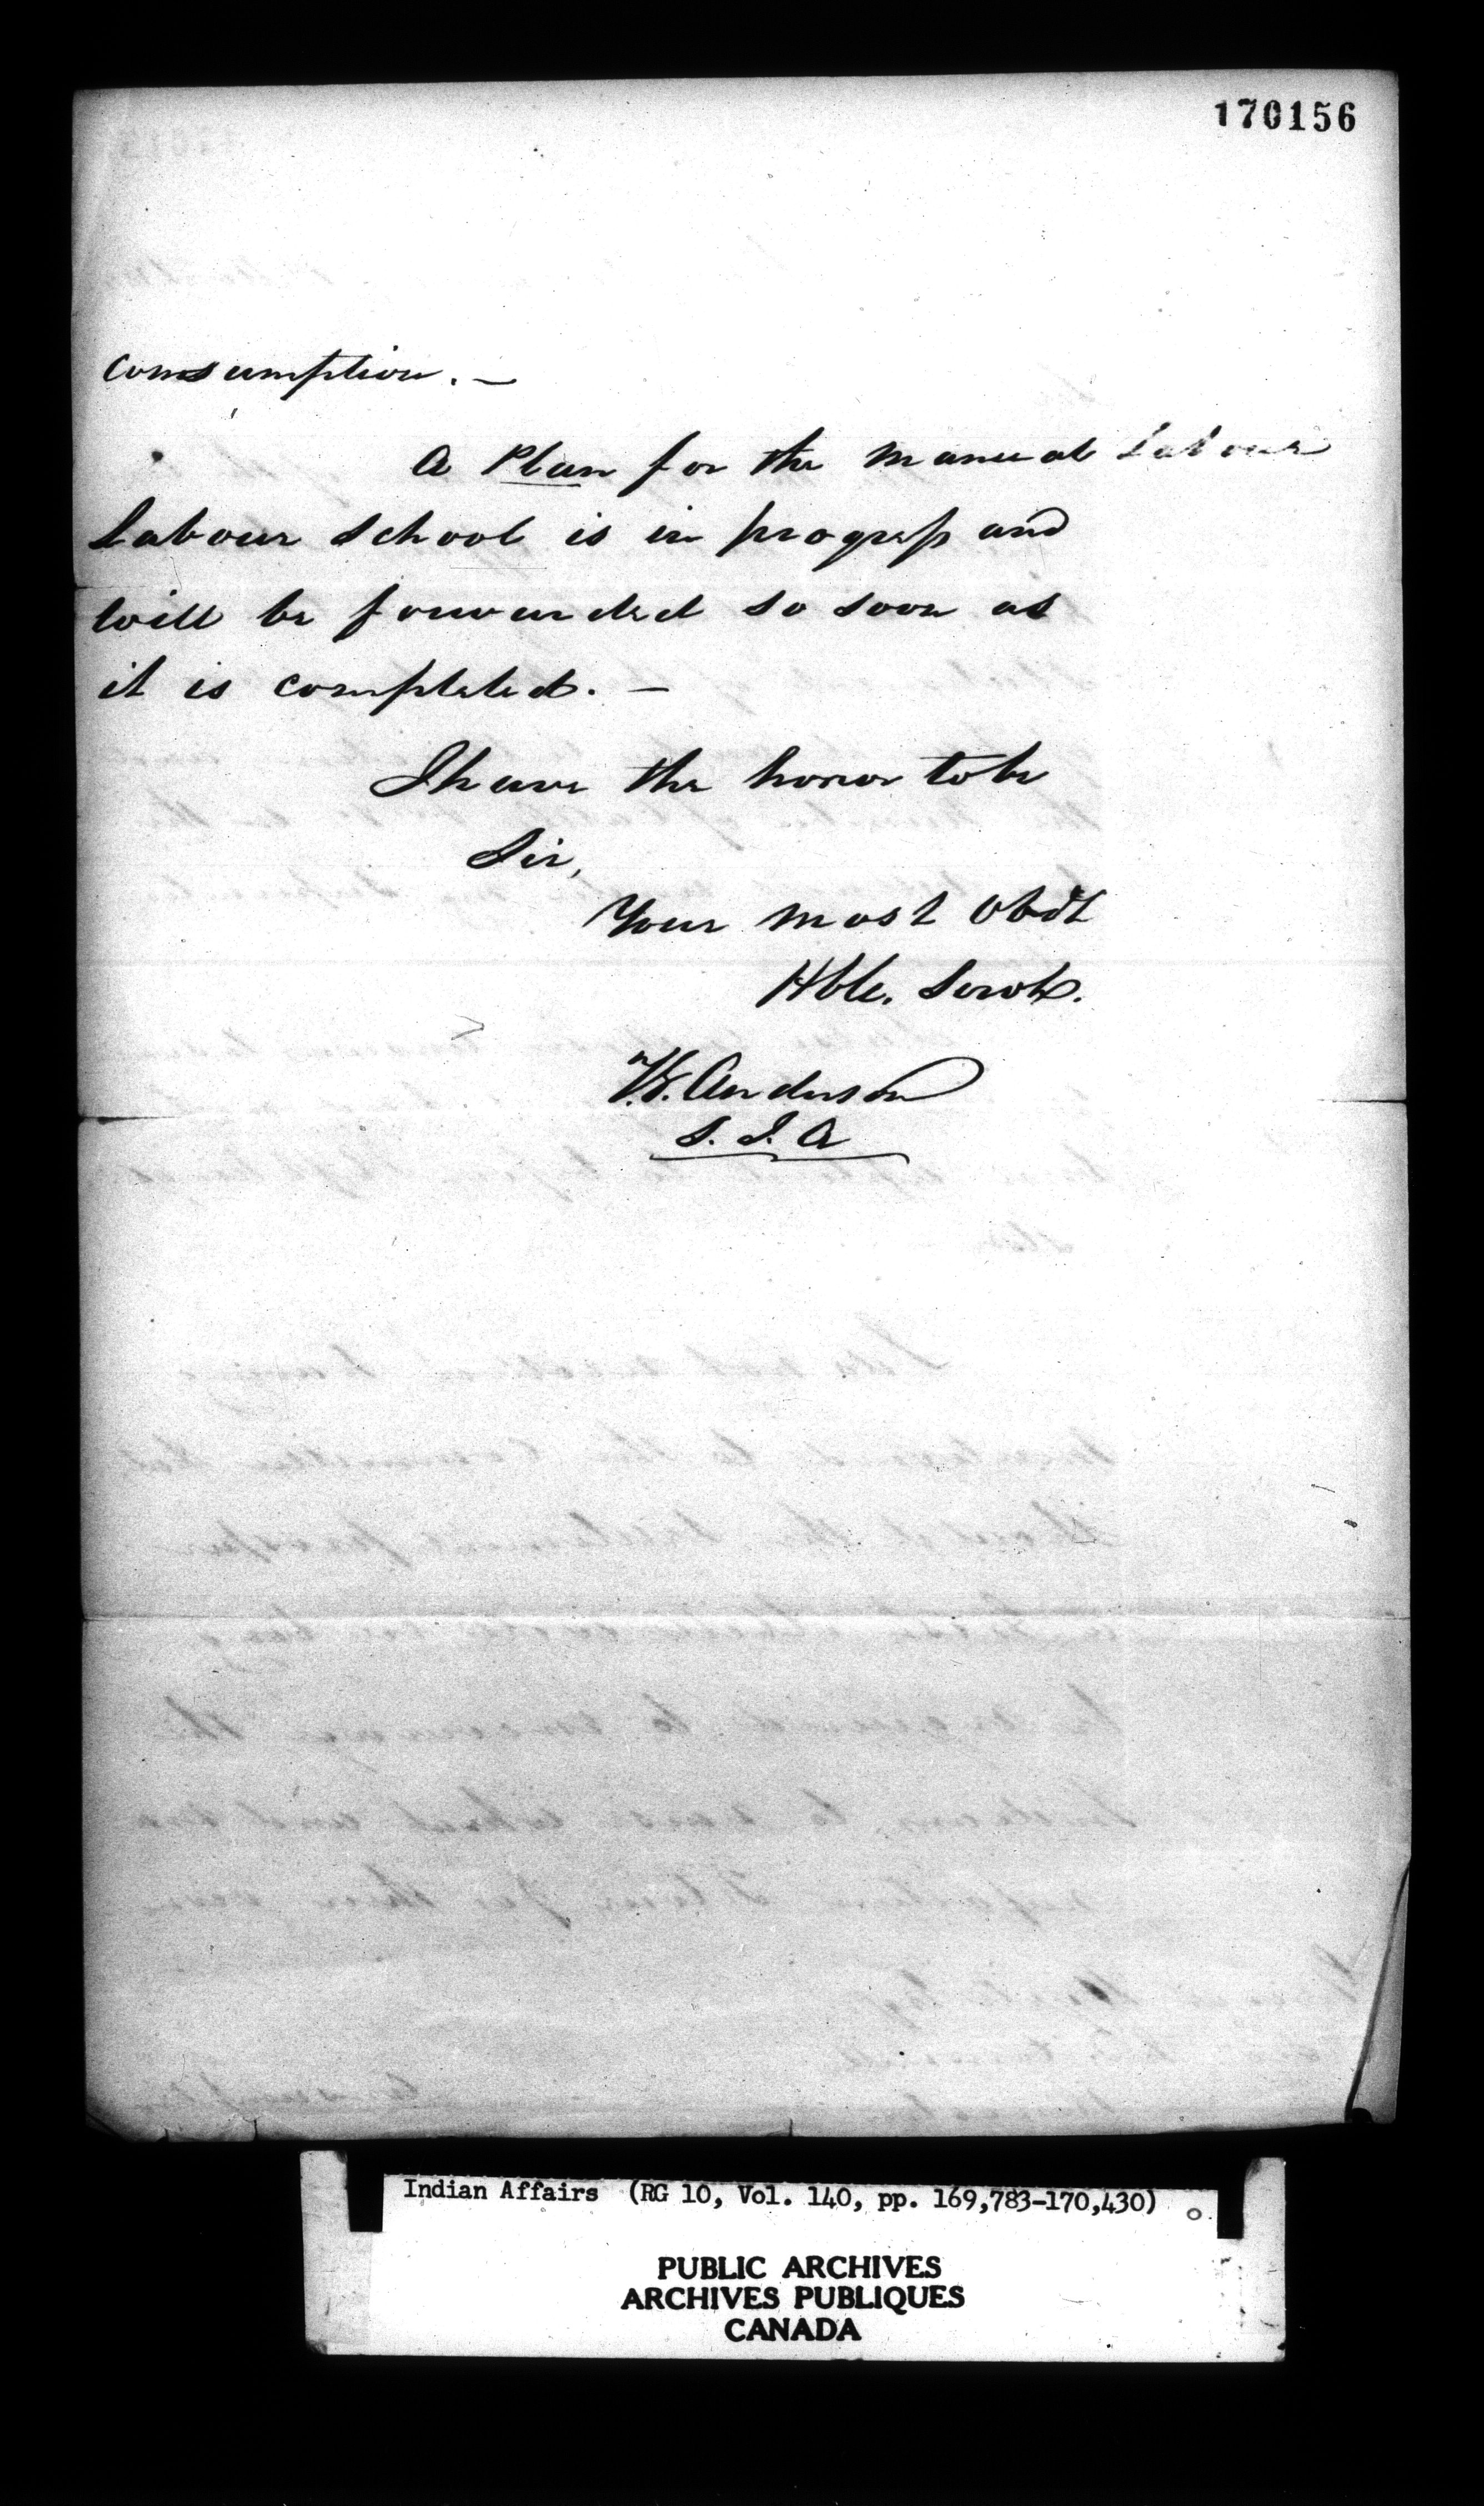 170156
consumption. —
A Plan for the Manual Labour
Labour School is in progress and
will be forwarded so soon as
it is completed. —
I have the honor to be
Sir,
Your most Obdt
Hble. Servt.
T.G. Anderson
S. I. A
Indian Affairs (RG 10, Vol. 140, pp. 169,783-170,430)
PUBLIC ARCHIVES
ARCHIVES PUBLIQUES
CANADA